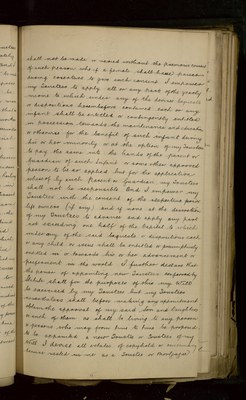 shall not be made or varied without the previous consent
of such person who if a female shall have power
during coverture to give such consent I empower
my Trustees to apply all or any part of the yearly
income to which under any of the devises bequests
or dispositions hereinbefore contained such or any
infant shall be entitled or contingently entitled
in possession towards the maintenance and education
or otherwise for the benefit of such infant during
his or her minority or at the option of my Trustees
to pay the same into the hands of the parent or
guardian of such infant or some other approved
person to be so applied but for the application
whereof by such parent or guardian my Trustees
shall not be responsible And I empower my
Trustees with the consent of the respective prior
life owners (if any) and if none at the discretion
of my Trustees to advance and apply any part
not exceeding one half of the capital to which
under any of the said bequests or dispositions such
or any child or issue shall be entitled or presumptively
entitled in or towards his or her advancement or
preferment in the world I further declare that
the power of appointing new Trustees conferred by
Statute shall for the purposes of this my Will
be exercised by my Trustees but my Trustees
nevertheless shall before making any appointment
obtain the approval of my said Son and Daughters
or such of them as shall be living to any person
or persons who may from time to time be proposed
to be appointed a new Trustee or Trustees of my
Will I devise all estates of copyhold or customary
tenure vested in me as a Trustee or Mortgagee